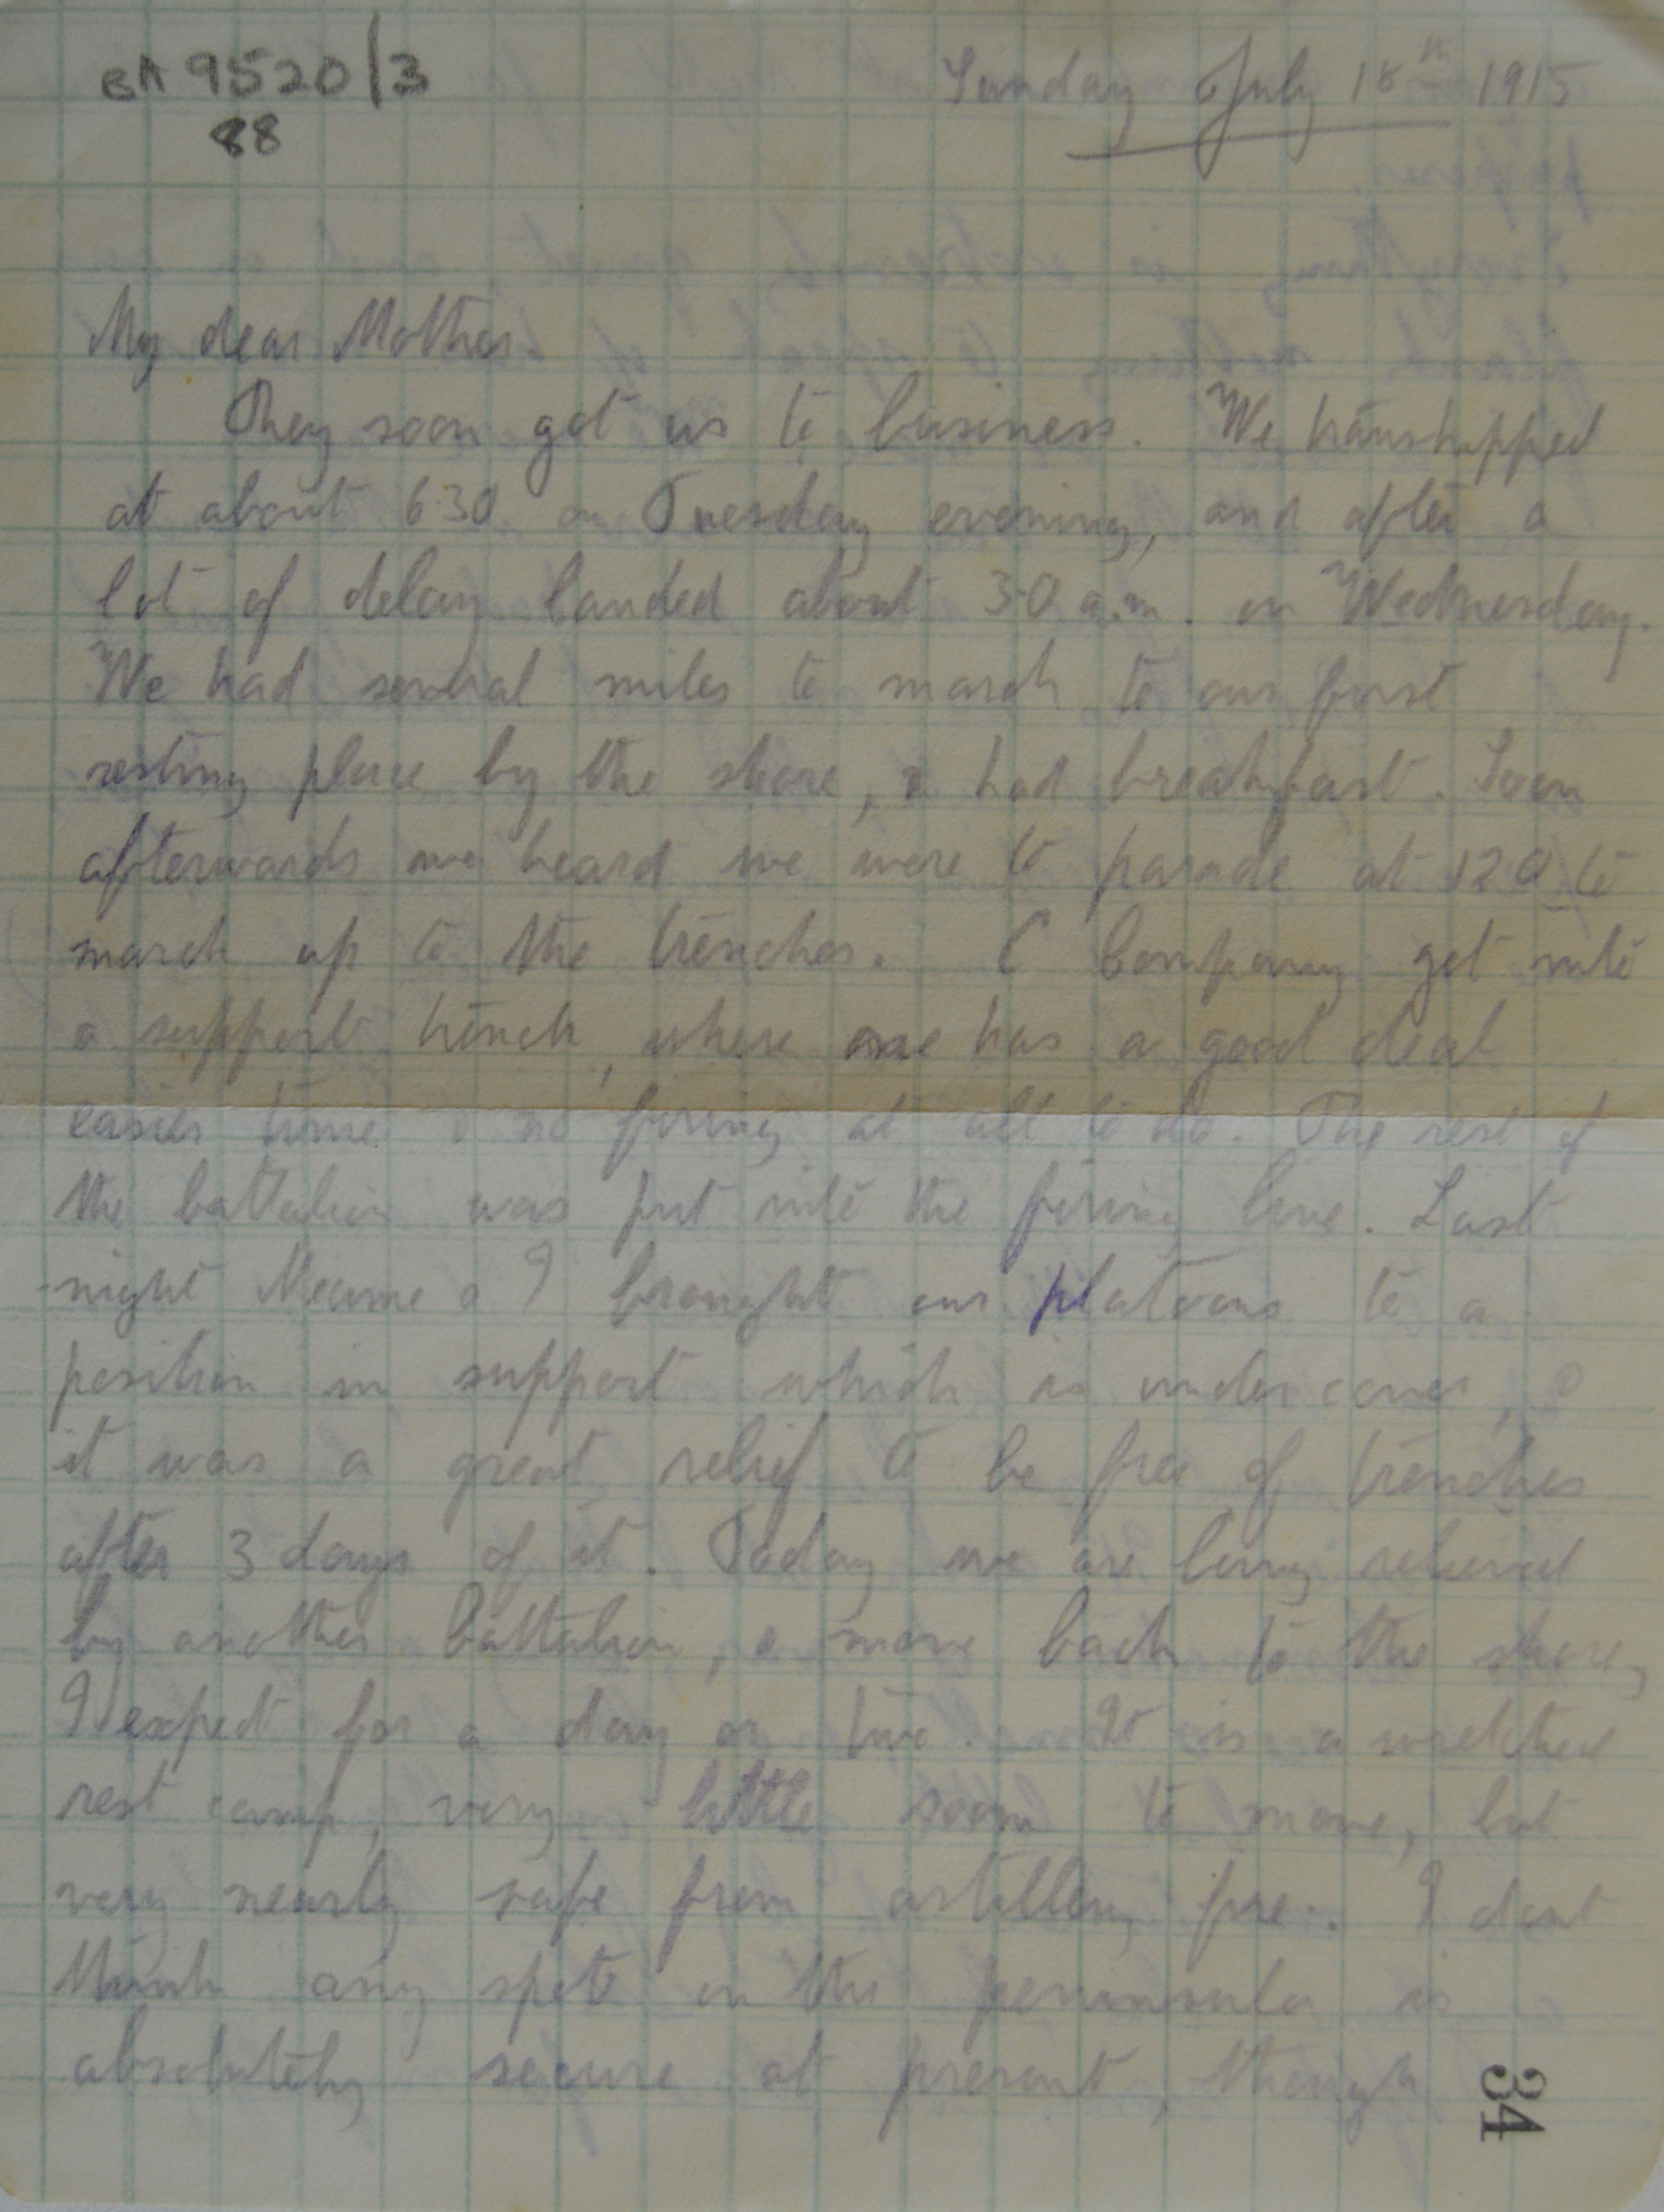 BA 9520/3
88
Sunday July 18th 1915
My dear Mother.
They soon got us to business. We transhipped
at about 6.30 on Tuesday evening, and after a
lot of delay landed about 3.0 a.m. on Wednesday.
We had several miles to march to our first
resting place by the shore, & had breakfast. Soon
afterwards we heard we were to parade at 12.0 to
march up to the trenches. C Company got into
a support trench, where one has a good deal
easier time & no firing at all to do. The rest of
the battalion was put into the firing line. Last
night & I brought our platoons to a
position in support which is under cover, &
it was a great relief to be free of trenches
after 3 days of it. Today we are being relieved
by another battalion, & move back to the shore,
I expect for a day or two. It is a wretched
rest camp, very little room to move, but
very nearly safe from artillery fire. I dont
think any spot on the peninsula is
absolutely secure at present, though
34